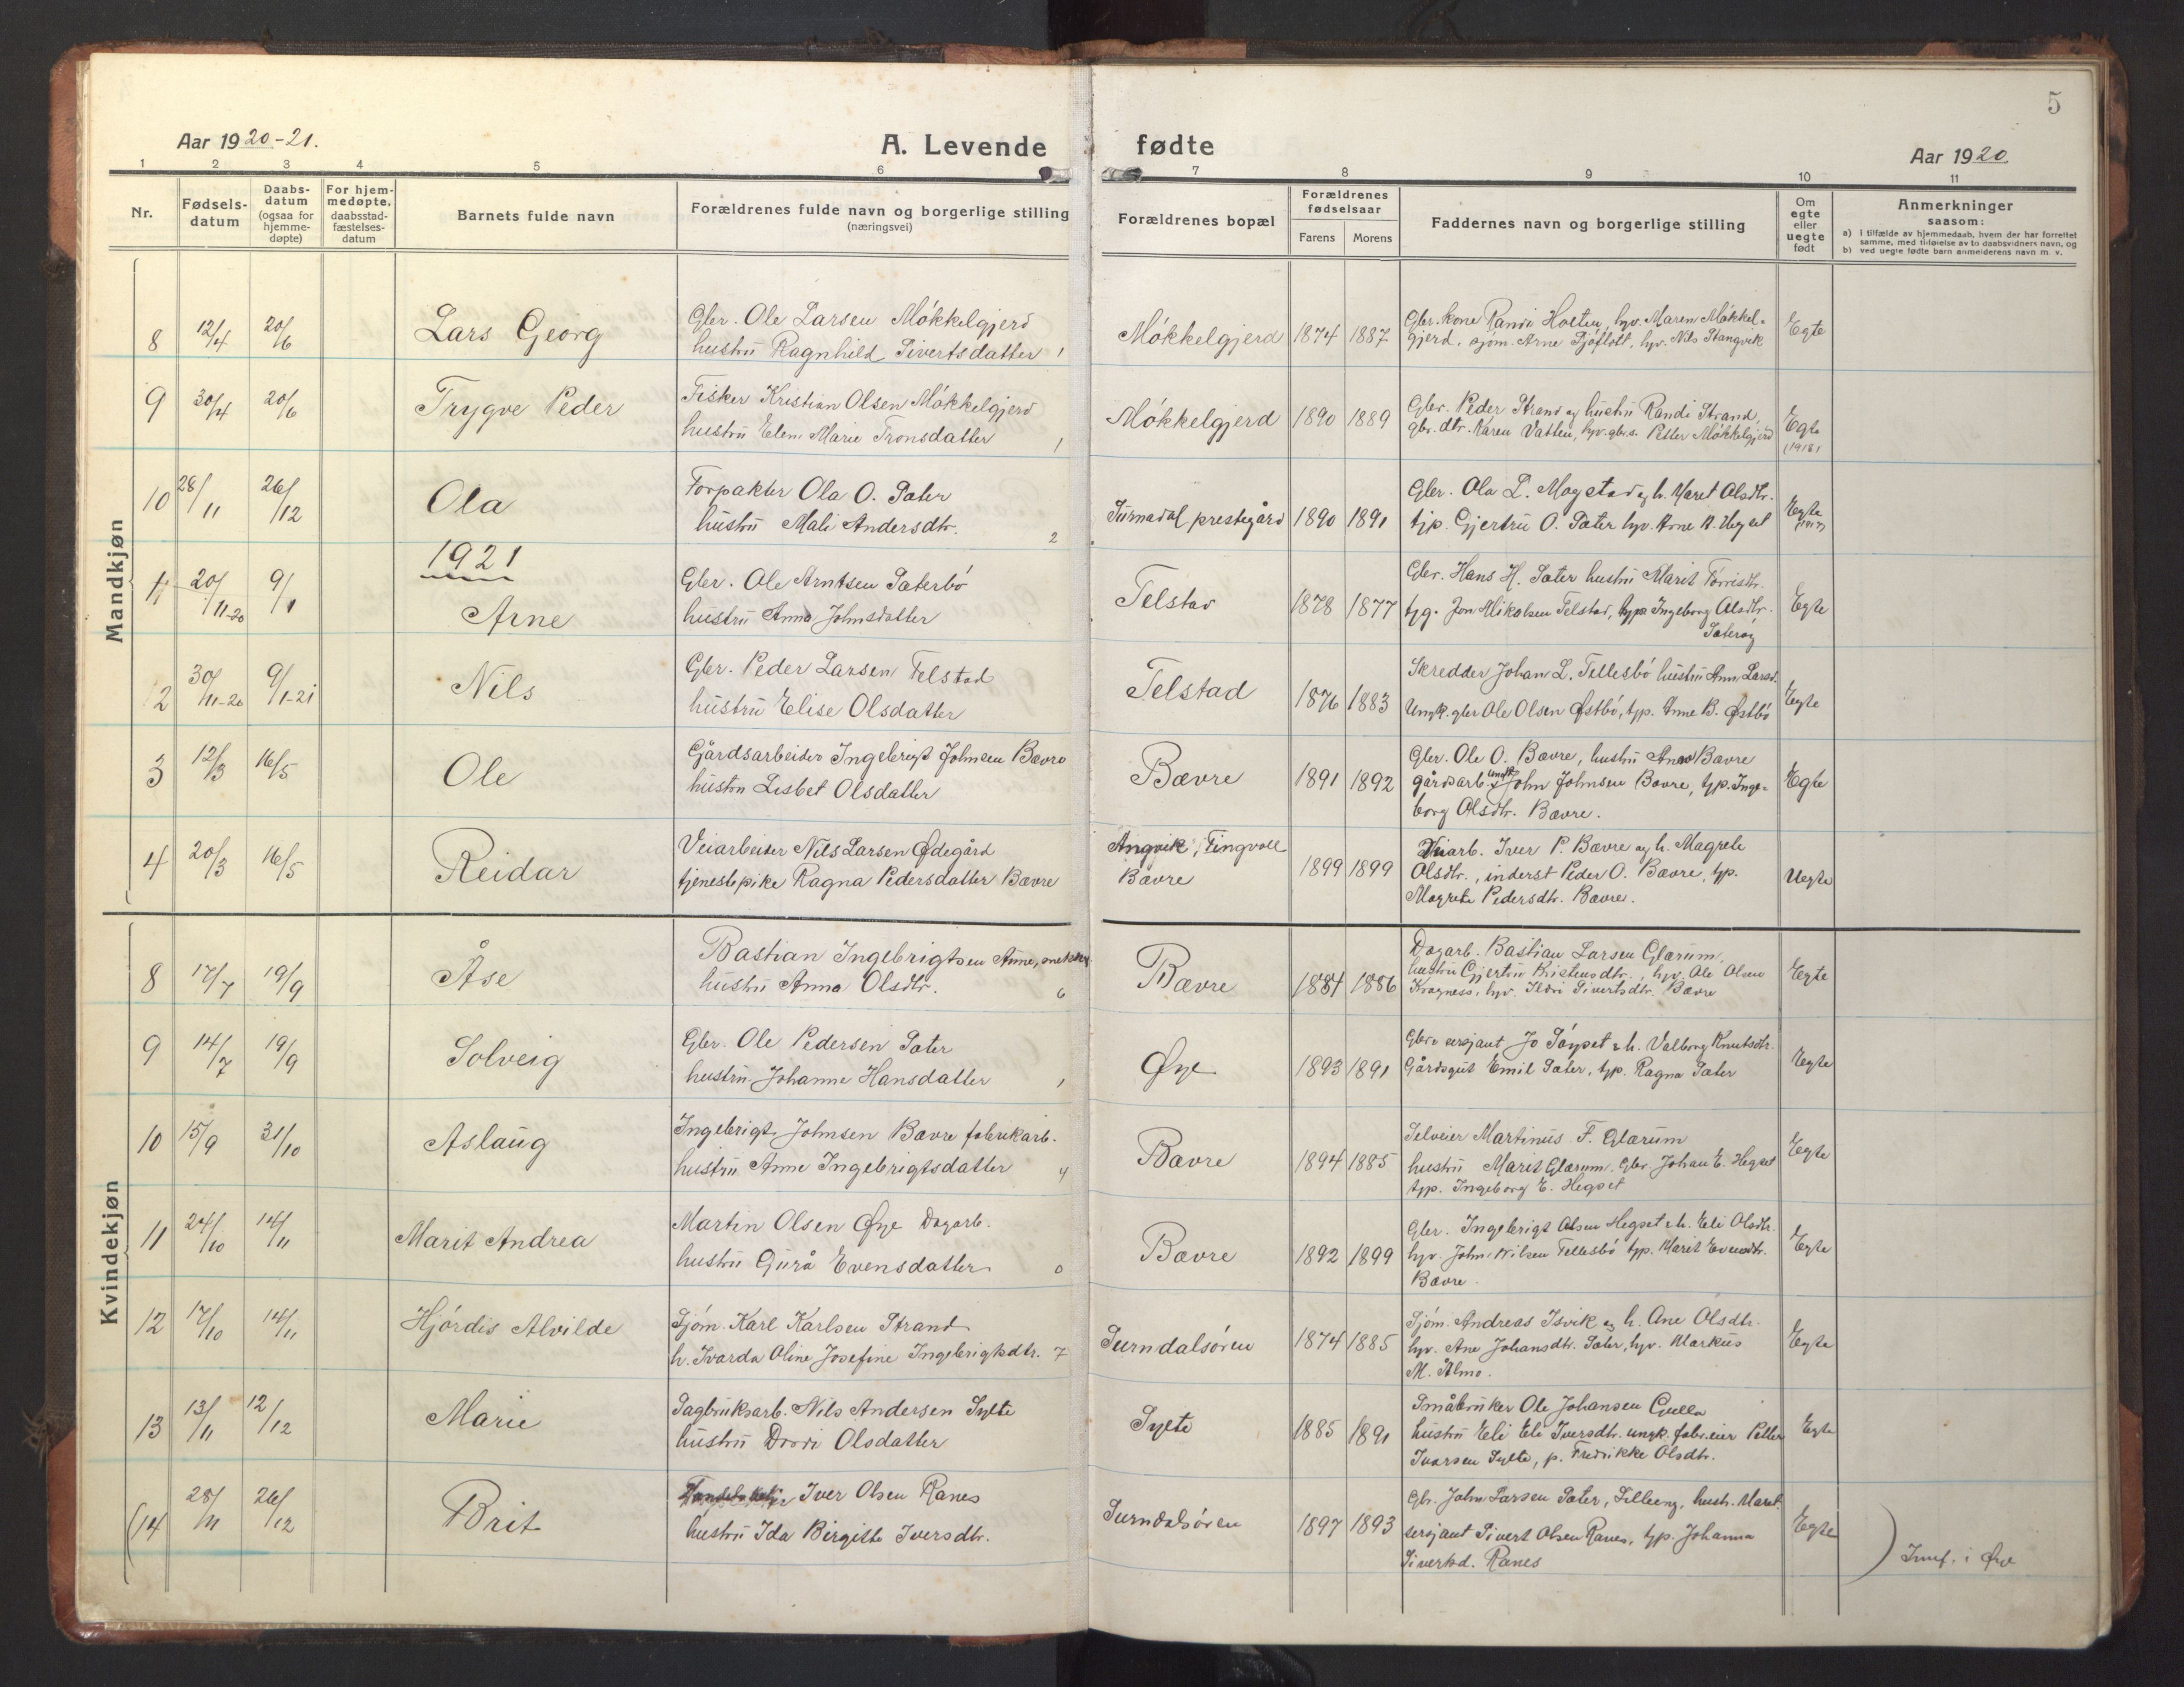 5
Aar 1920-21.
A. Levende fødte
Aar 1920.
1 2 3 4 5 6 7 8 9 10 11
Nr.
Fødsels-
datum
Daabs-
datum
(ogsaa for
hjemme-
døpte)
For hjem-
medøpte,
daabsstad-
fæstelses-
datum
Barnets fulde navn
Forældrenes fulde navn og borgerlige stilling
(næringsvei)
Forældrenes bopæl
Forældrenes
fødselsaar
Farens Morens
Faddernes navn og borgerlige stilling
Om
egte
eller
uegte
født
Anmerkninger
saasom:
a) i tilfælde av hjemmedaab, hvem der har forrettet
samme, med tilføielse av to daabsvidners navn, og
b) ved uegte fødte barn anmelderens navn m. v.
Mandkjøn
8 12/4 20/6 Lars Georg
Gbr. Ole Larsen Møkkelgjerd
hustru Ragnhild Sivertsdatter 1
Møkkelgjerd 1874 1887
Gbr. kone Randi Holten, hyv. Maren Møkkel-
gjerd, sjøm. Arne Sjøflott, hyv. Nils Stangvik
Egte
9 30/4 20/6 Trygve Peder
Fisker Kristian Olsen Møkkelgjerd
hustru Elen Marie Tronsdatter 1
Møkkelgjerd 1890 1889
Gbr. Peder Strand og hustru Randi Strand,
gbr. dtr. Karen Vatten, hyv. gbr.s. Petter Møkkelgjerd
Egte
(1918)
10 28/11 26/12 Ola
Forpakter Ola O. Sæter
hustru Mali Andersdtr. 2
Surnadal prestegård 1890 1891
Gbr. Ola L. Mogstad og h. Maret Olsdtr.
tjp. Gjertru O. Sæter hyv. Arne A. Hegset
Egte
1921
1 20/11-20 9/1 Arne
Gbr. Ole Arntsen Sæterbø
hustru Anna Johnsdatter
Telstad 1878 1877
Gbr. Hans H. Sæter hustru Marit Torrisdtr.
tjg. Jon Mikalsen Telstad, typ. Ingeborg Olsdtr.
Sæterøy
Egte
2 30/11-20 9/1-21 Nils
Gbr. Peder Larsen Telstad
hustru Elise Olsdatter
Telstad 1876 1883
Skredder Johan L. Tellesbø hustru Ann Larsd.
Ungk. gbr Ole Olsen Østbø, typ. Anne B. Østbø
Egte
3 12/3 16/5 Ole
Gårdsarbeider Ingebrigt Johnsen Bævre
hustru Lisbet Olsdatter
Bævre 1891 1892
Gbr. Ole O. Bævre, hustru Ane Bævre
gårdsarb. ungk. John Johnsen Bævre, typ. Inge-
borg Olsdtr. Bævre.
Egte
4 20/3 16/5 Reidar
Veiarbeider Nils Larsen Ødegård
tjenestepike Ragna Pedersdatter Bævre
Angvik, Tingvoll
Bævre 1899 1899
Veiarb. Iver P. Bævre og h. Magrete
Olsdtr., inderst Peder O. Bævre, typ.
Magrete Pedersdtr. Bævre.
Uegte
Kvindekjøn
8 17/7 19/9 Åse
Bastian Ingebrigtsen Aune, snekker
hustru Anna Olsdtr. 6
Bævre 1884 1886
Dagarb. Bastian Larsen Glærum,
hustru Gjertru Kristensdtr., hyv. Ole Olsen
Kragness, hyv. Ildri Sivertsdtr. Bævre
Egte
9 14/7 19/9 Solveig
Gbr. Ole Pedersen Sæter
hustru Johanne Hansdatter 1
Øye 1893 1891
Gbr. sersjant Jo Søyset & h. Valborg Knutsdtr.
Gårdsgut Emil Sæter, typ. Ragna Sæter
Egte
10 15/9 31/10 Aslaug
Ingebrigt Johnsen Bævre fabrikarb.
hustru Anne Ingebrigtsdatter 4
Bævre 1894 1885
Selveier Martinus F. Glærum
hustru Marit Glærum. Gbr. Johan E. Hegset
typ. Ingeborg E. Hegset
Egte
11 24/10 14/11 Marit Andrea
Martin Olsen Øye Dagarb.
hustru Gurå Evensdatter 0
Bævre 1892 1899
Gbr. Ingebrigt Olsen Hegset & h. Eli Olsdtr.
hyv. John Nilsen Tellesbø typ. Marit Evensdtr.
Bævre.
Egte
12 17/10 14/11 Hjørdis Alvilde
Sjøm. Karl Karlsen Strand
h. Ivarda Oline Josefine Ingebrigtsdtr. 7
Surndalsøren 1874 1885
Sjøm. Andreas Isvik og h. Ane Olsdtr.
hyv. Ane Johansdtr. Sæter, hyv. Markus
M. Almo.
Egte
13 13/11 12/12 Marie
Sagbruksarb. Nils Andersen Sylte
hustru Dordi Olsdatter
Sylte 1885 1891
Småbruker Ole Johansen Gulla
hustru Eli Eli Iversdtr. ungk. fabr.eier Petter
Ivarsen Sylte, p. Fredrikke Olsdtr.
Egte
(14 28/11 26/12 Brit
Iver Olsen Ranes
hustru Ida Birgitte Iversdtr.
Surndalsøren 1897 1893
Gbr. John Larsen Sæter, Lilleeng, hustr. Maret
sersjant Sivert Olsen Ranes, typ. Johanna
Sivertsd. Ranes
Egte
) Innf. i Øye